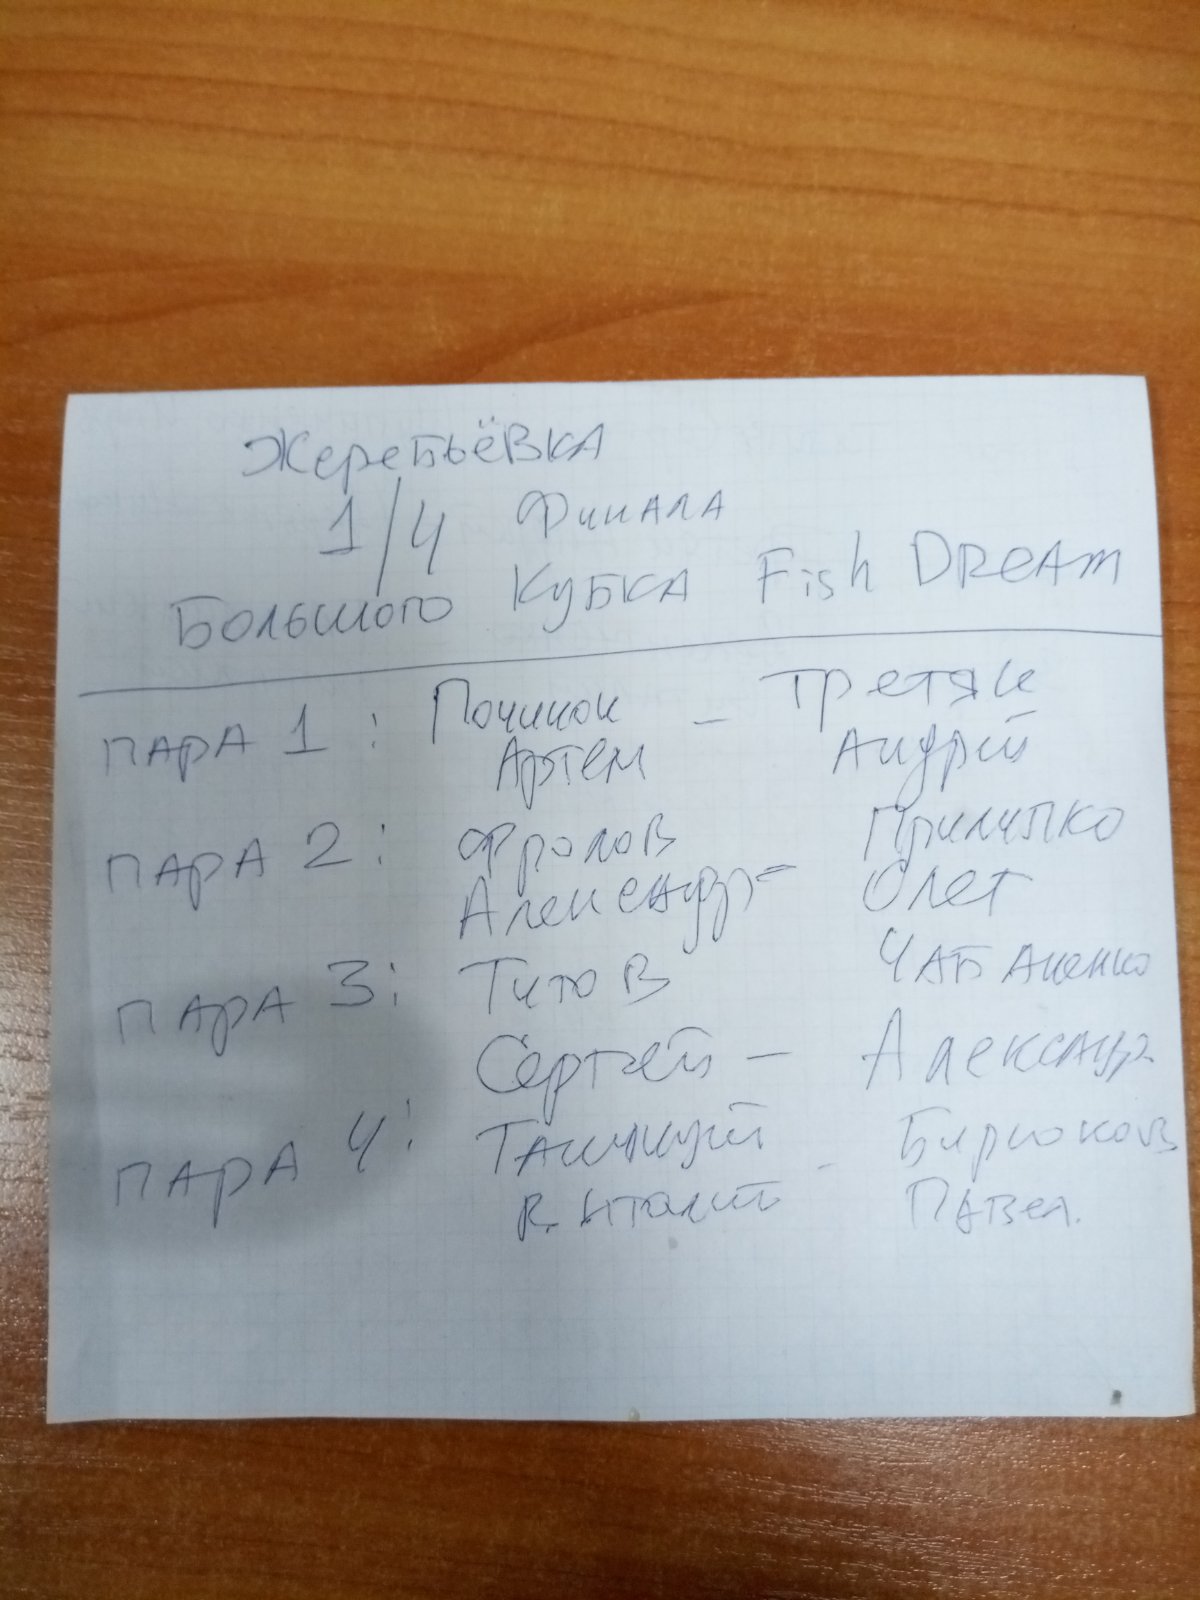 Жеребьёвка
1/4 Финала
Большого Кубка Fish Dream
ПАРА 1: Починок - Третяк
Артем Андрій
ПАРА 2: Фролов Прилипко
Александр - Олег
ПАРА 3: Титов Чабаненко
Сергей - Александр
ПАРА 4: - Бирюков
Виталий Павел.